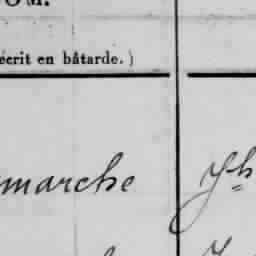 OM.
écrit en bâtarde.)
marche Jh